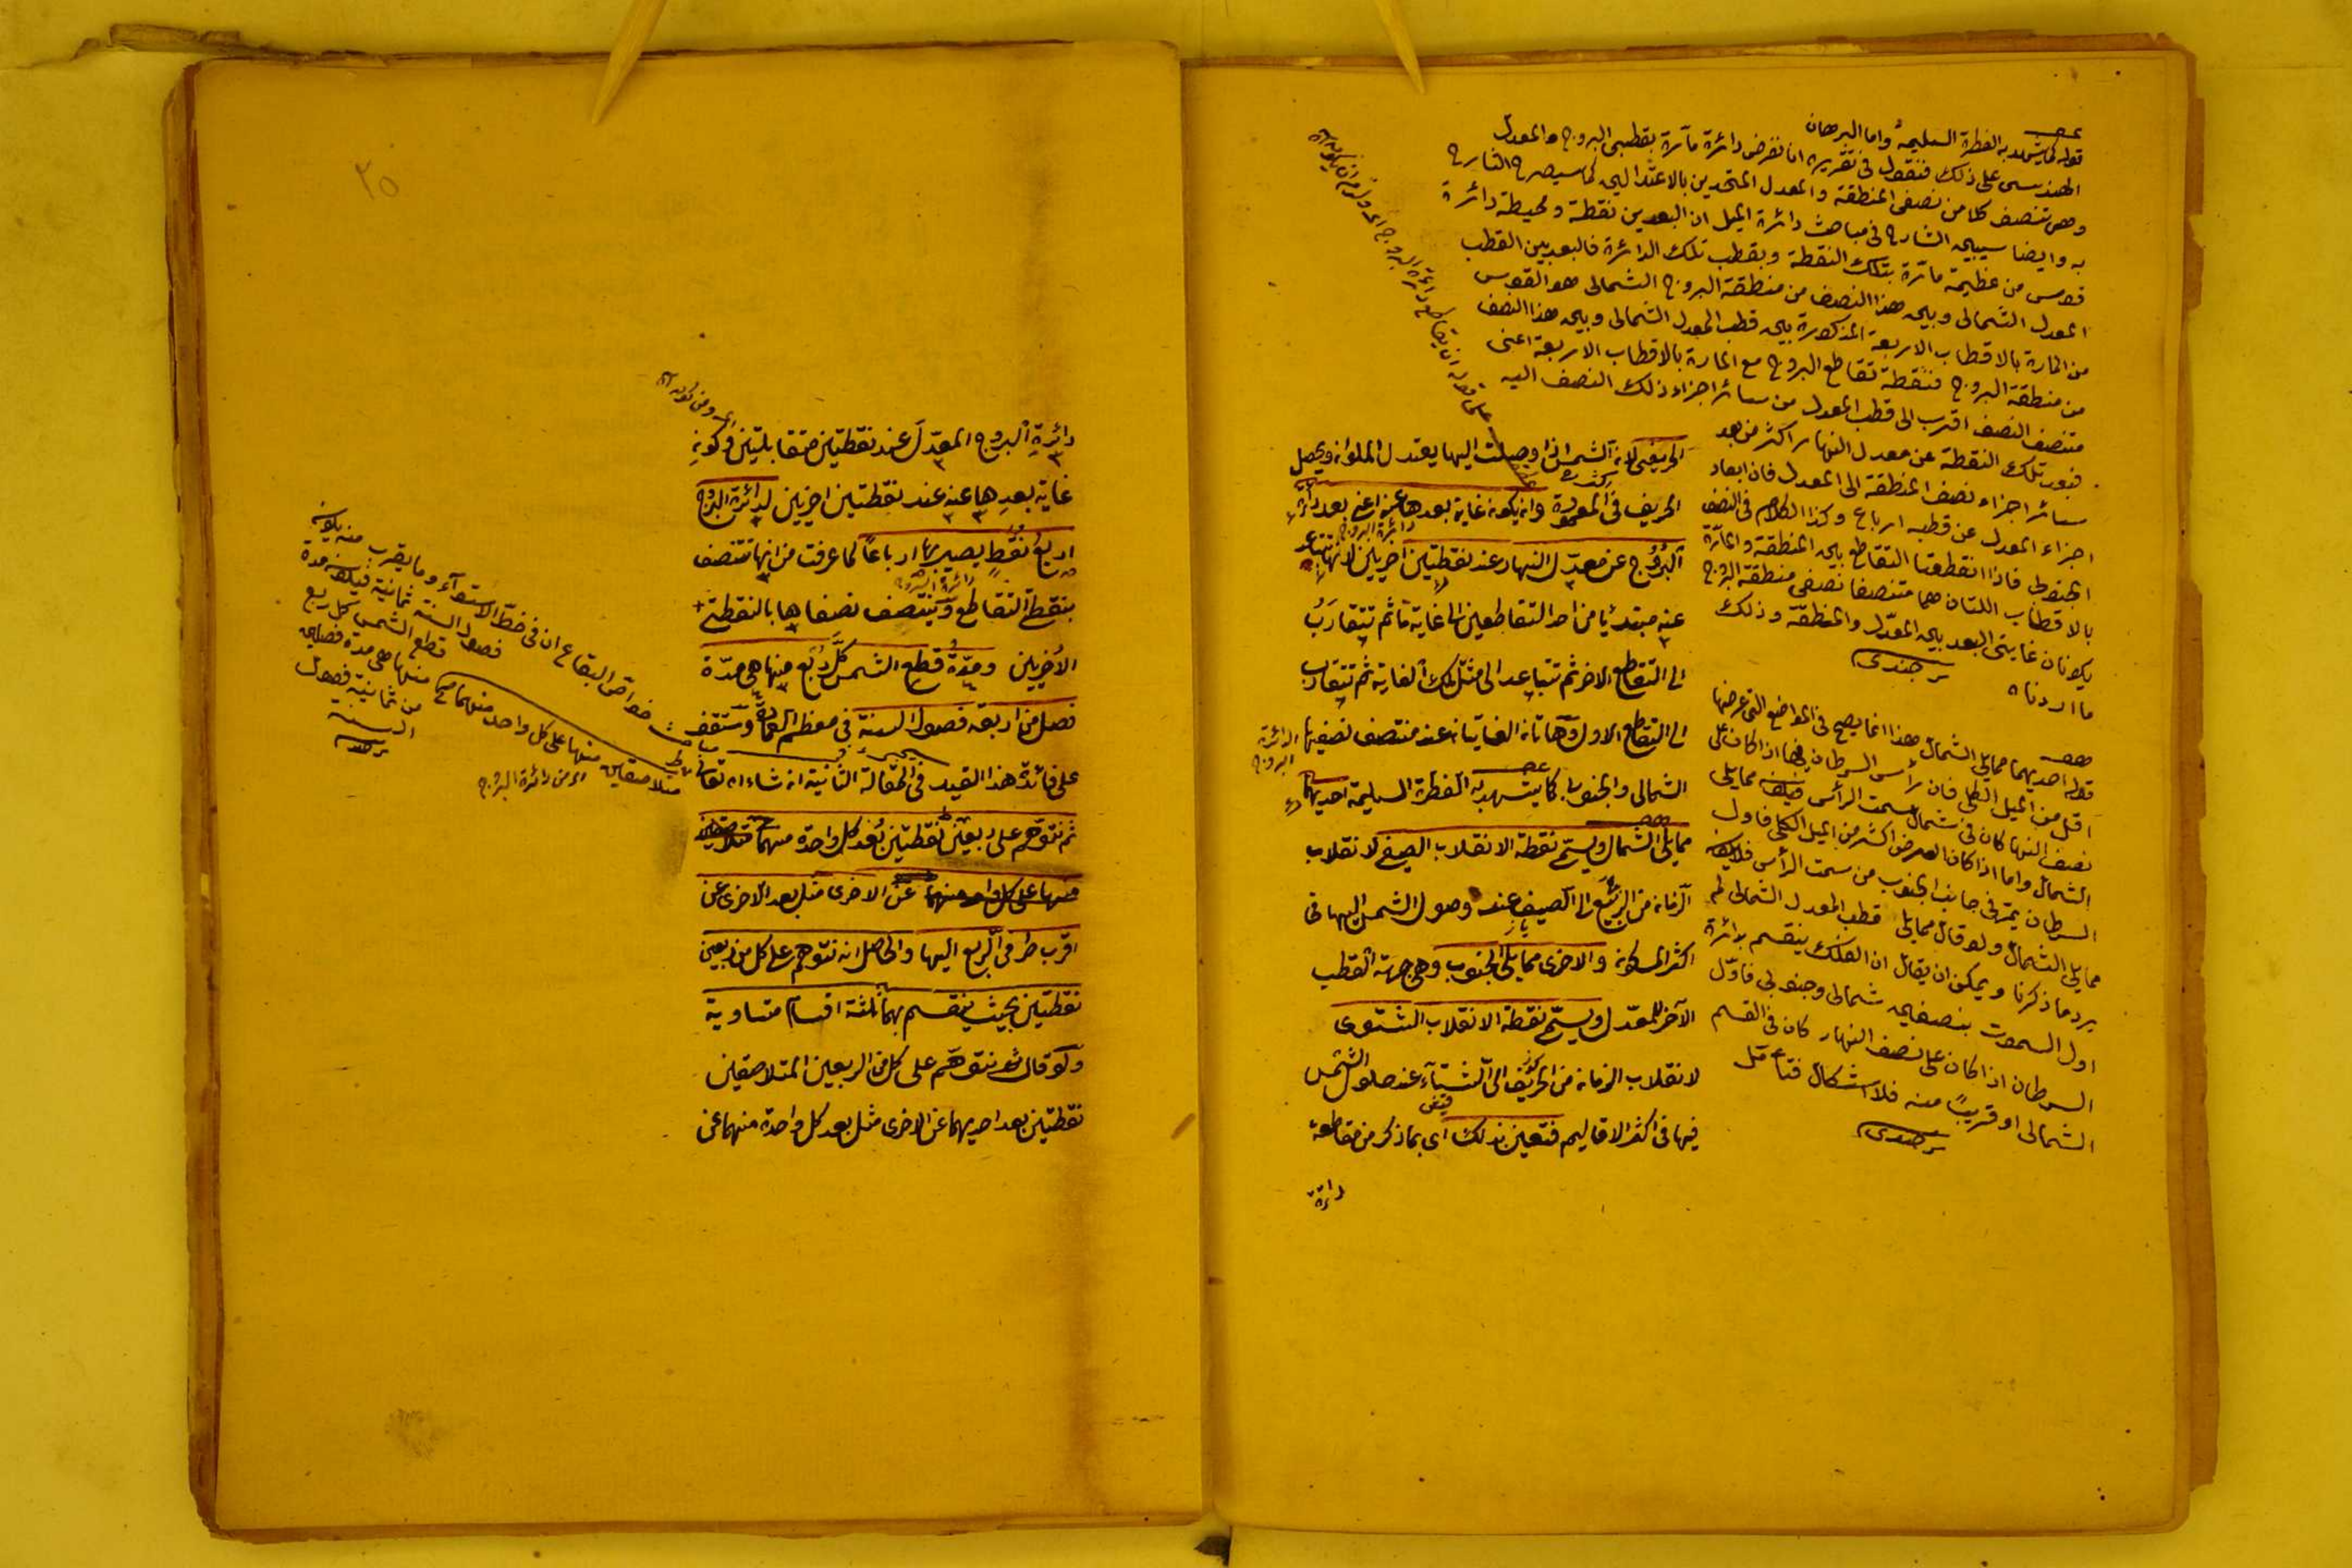 قوله كما يشهد به الفطرة السليمة واما البرهان
الهندسى على ذلك فنقول فى تقريره انا نفرض دائرة مارة بقطبى البروج والمعدل
وهى تنصف كلا من نصفى المنطقة والمعدل المتحدين بالاعتدالين كما سيصرح الشارح
به وايضا سيبين الشارح فى مباحث دائرة الميل ان البعد بين نقطة ومحيط دائرة
قوس من عظيمة مارة بتلك النقطة وبقطب تلك الدائرة فالبعد بين القطب
المعدل الشمالى وبين هذا النصف من منطقة البروج الشمالى هو القوس
من المارة بالاقطاب الاربعة المذكورة بين قطب المعدل الشمالى وبين هذا النصف
من منطقة البروج فنقطة تقاطع البروج مع المارة بالاقطاب الاربعة اعنى
منتصف النصف اقرب الى قطب المعدل من سائر اجزاء ذلك النصف اليه
فبعد تلك النقطة عن معدل النهار اكثر من بعد
سائر اجزاء نصف المنطقة الى المعدل فان ابعاد
اجزاء المعدل عن قطبه ارباع وكذا الكلام فى النصف
الجنوبى فاذا نقطتا التقاطع بين المنطقة والمارة
بالاقطاب اللتان هما منتصفا نصفى منطقة البروج
يكونان غايتى البعد بين المعدل والمنطقة وذلك
ما اردناه
برجندى
قوله احديهما ممايلى الشمال هذا انما يصح فى المواضع التى عرضها
اقل من الميل الكلى فان رأس السرطان فيها اذا كان على
نصف النهار كان فى شمال سمت الرأس فيكون ممايلى
الشمال واما اذا كان العرض اكثر من الميل الكلى فاول
السرطان يمر فى جانب الجنوب من سمت الرأس فلا يكون
ممايلى الشمال ولو قال ممايلى قطب المعدل الشمالى لم
يرد ما ذكرنا ويمكن ان يقال ان الفلك ينقسم بدائرة
اول السموت بنصفين شمالى وجنوبى فاول
السرطان اذا كان على نصف النهار كان فى القسم
الشمالى او قريبا منه فلا اشكال فتأمل
برجندى
الخريفى لانه الشمس اذا وصلت اليها يعتدل الملوان ويحصل
الخريف فى المعمورة وان يكون غاية بعدها عنه اعنى بعد دائرة
البروج عن معدل النهار عند نقطتين اخريين لانها تتباعد
دائرة البروج
عنه مبتدئا من احد التقاطعين الى غاية ما ثم تتقارب
الى التقاطع الاخر ثم تتباعد الى مثل تلك الغاية ثم تتقارب
الى التقاطع الاول وهاتان الغايتان عند منتصف نصفيها
الدائرة
البروج
الشمالى والجنوبى كما يشهد به الفطرة السليمة احديهما
ممايلى الشمال ويسمى نقطة الانقلاب الصيفى لانقلاب
الزمان من الربيع الى الصيف عند وصول الشمس اليها فى
اكثر المسكونة والاخرى ممايلى الجنوب وهى جهة القطب
الآخر للمعدل ويسمى نقطة الانقلاب الشتوى
لانقلاب الزمان من الخريف الى الشتاء عند حلول الشمس
فيها فى اكثر الاقاليم فتعين بذلك اى بما ذكر من مقاطعة
دائرة
٢٥
دائرة البروج المعدل عند نقطتين متقابلتين وكونه
غاية بعدها عنه عند نقطتين اخريين لدائرة البروج
اربع نقط يصير بها ارباعا لما عرفت من انها تتنصف
دائرة البروج
بنقطتى التقاطع وينتصف نصفاها بالنقطتين
الاخريين ومدة قطع الشمس كل ربع منها هى مدة
فصل من اربعة فصول السنة فى معظم المعمورة وستقف
على فائدة هذا القيد فى المقالة الثانية ان شاء الله تعالى
ثم نتوهم على ربعين نقطتين بعد كل واحدة منهما
عن الاخرى مثل بعد الاخرى عن
اقرب طرفى الربع اليها والحاصل انه نتوهم على كل من ربعين
نقطتين بحيث ينقسم بهما ثلثة اقسام متساوية
ولو قال ثم نتوهم على كل من الربعين المتلاصقين
نقطتين بعد احديهما عن الاخرى مثل بعد كل واحدة منهما عن
خواص البقاع ان فى خط الاستوآء وما يقرب منه يكون
فصول السنة ثمانية فيكون مدة
قطع الشمس كل ربع
منها هى مدة فصلين
من ثمانية فصول
السنة
متلاصقين منها على كل واحد منهما
اى من دائرة البروج